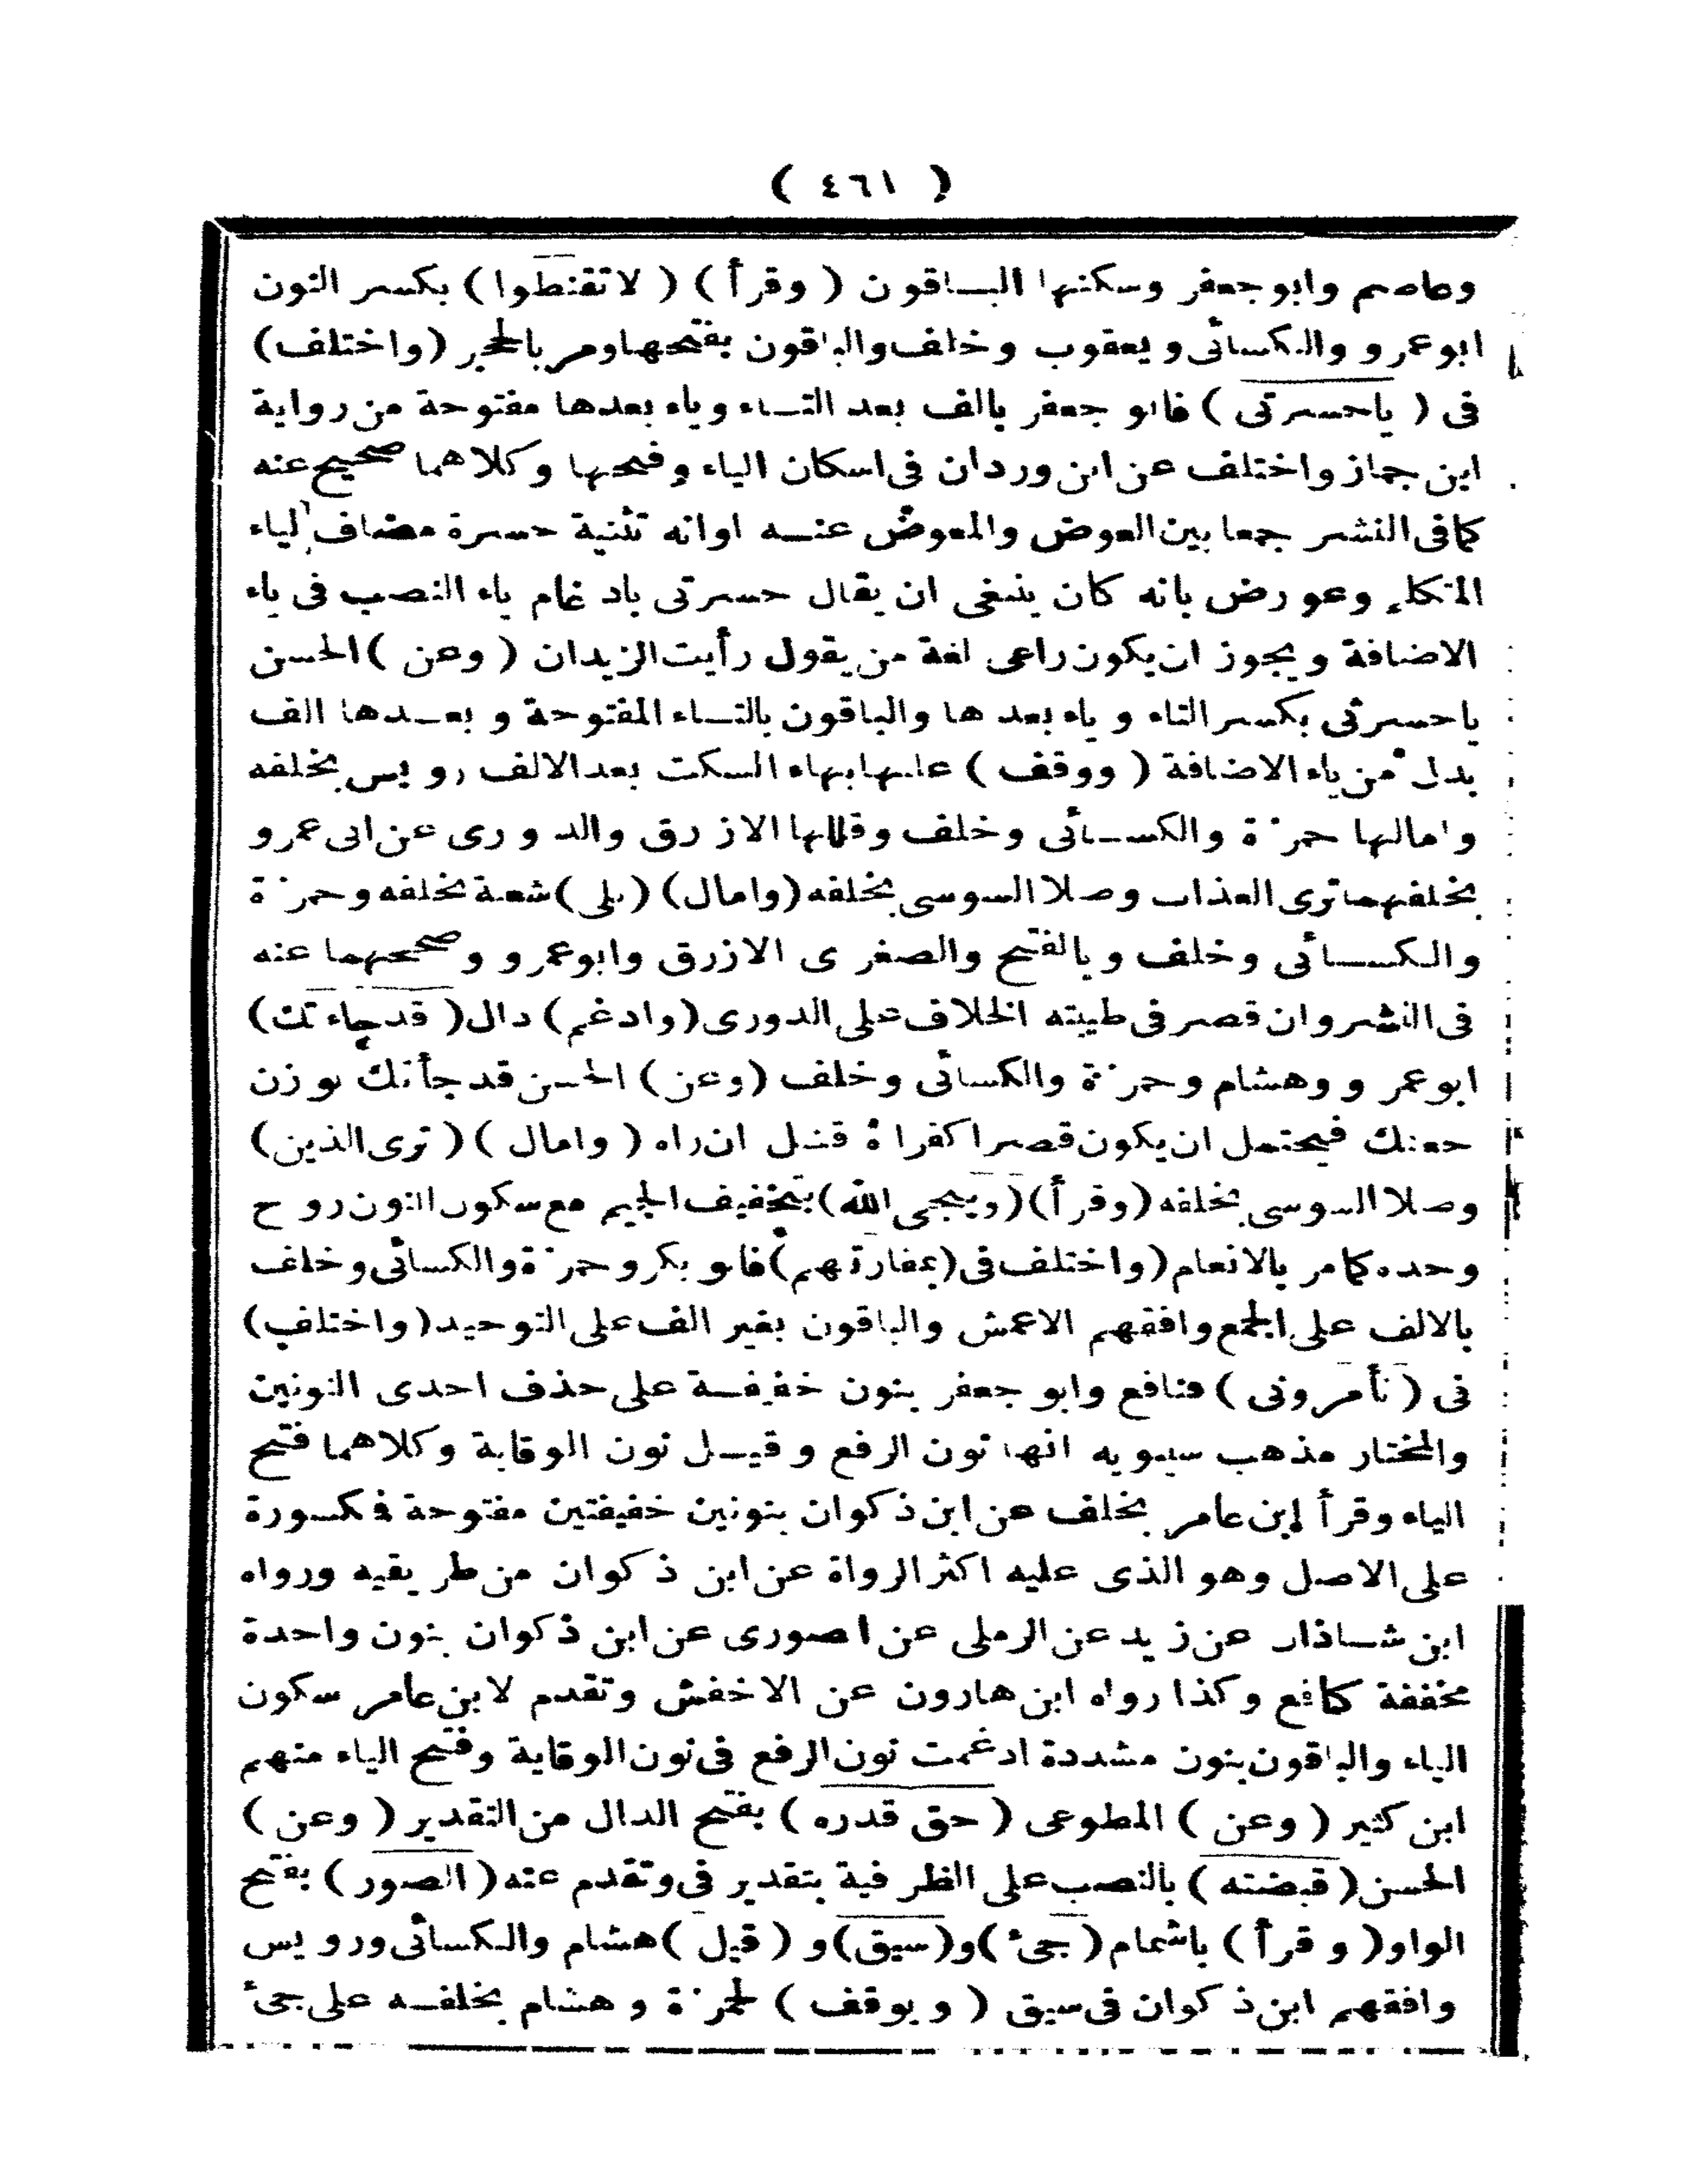 ( ٤٦١ )
وعاصم وابو جعفر وسكنها الباقون ( وقرأ ) ( لا تقنطوا ) بكسر النون
ابوعمرو والكسائى ويعقوب وخلف والباقون بفتحها ومر بالحجر (واختلف)
فى ( ياحسرتى ) فابو جعفر بالف بعد التاء وياء بعدها مفتوحة من رواية
ابن جماز واختلف عن ابن وردان فى اسكان الياء وفتحها وكلاهما صحيح عنه
كما فى النشر جمعا بين العوض والمعوض عنه اوانه تثنية حسرة مضاف لياء
المتكلم وعورض بانه كان ينبغى ان يقال حسرتى بادغام ياء النصب فى ياء
الاضافة ويجوز ان يكون راعى لغة من يقول رأيت الزيدان ( وعن ) الحسن
ياحسرتى بكسر التاء و ياء بعدها والباقون بالتاء المفتوحة و بعدها الف
بدل من ياء الاضافة ( ووقف ) عليها بهاء السكت بعد الالف رويس بخلفه
وامالها حمزة والكسائى وخلف وقللها الازرق والدورى عن ابى عمرو
بخلفهما ترى العذاب وصلا السوسى بخلفه (وامال) (بلى) شعبة بخلفه وحمزة
والكسائى وخلف وبالفتح والصغرى الازرق وابوعمرو وصححهما عنه
فى النشر وان قصر فى طيبته الخلاف على الدورى (وادغم) دال ( قد جاءتك)
ابوعمرو وهشام وحمزة والكسائى وخلف (وعن ) الحسن قد جأتك بوزن
جعتك فيحتمل ان يكون قصرا كقراءة قنبل ان راه ( وامال ) ( ترى الذين)
وصلا السوسى بخلفه (وقرأ) (وينجى الله) بتخفيف الجيم مع سكون النون روح
وحده كما مر بالانعام (واختلف فى (بمفازتهم) فابو بكر وحمزة والكسائى وخلف
بالالف على الجمع وافقهم الاعمش والباقون بغير الف على التوحيد (واختلف)
فى ( تأمرونى ) فنافع وابو جعفر بنون خفيفة على حذف احدى النونين
والمختار مذهب سيبويه انها نون الرفع وقيل نون الوقاية وكلاهما فتح
الياء وقرأ ابن عامر بخلف عن ابن ذكوان بنونين خفيفتين مفتوحة فمكسورة
على الاصل وهو الذى عليه اكثر الرواة عن ابن ذكوان من طريقيه ورواه
ابن شاذان عن زيد عن الرملى عن الصورى عن ابن ذكوان بنون واحدة
مخففة كنافع وكذا رواه ابن هارون عن الاخفش وتقدم لابن عامر سكون
الياء والباقون بنون مشددة ادغمت نون الرفع فى نون الوقاية وفتح الياء منهم
ابن كثير ( وعن ) المطوعى ( حق قدره ) بفتح الدال من التقدير ( وعن )
الحسن ( قبضته ) بالنصب على الظرفية بتقدير فى وتقدم عنه ( الصور ) بفتح
الواو ( وقرأ ) باشمام ( جىء ) و(سيق) و ( قيل ) هشام والكسائى ورويس
وافقهم ابن ذكوان فى سيق ( ويوقف ) لحمزة وهشام بخلفه على جىء